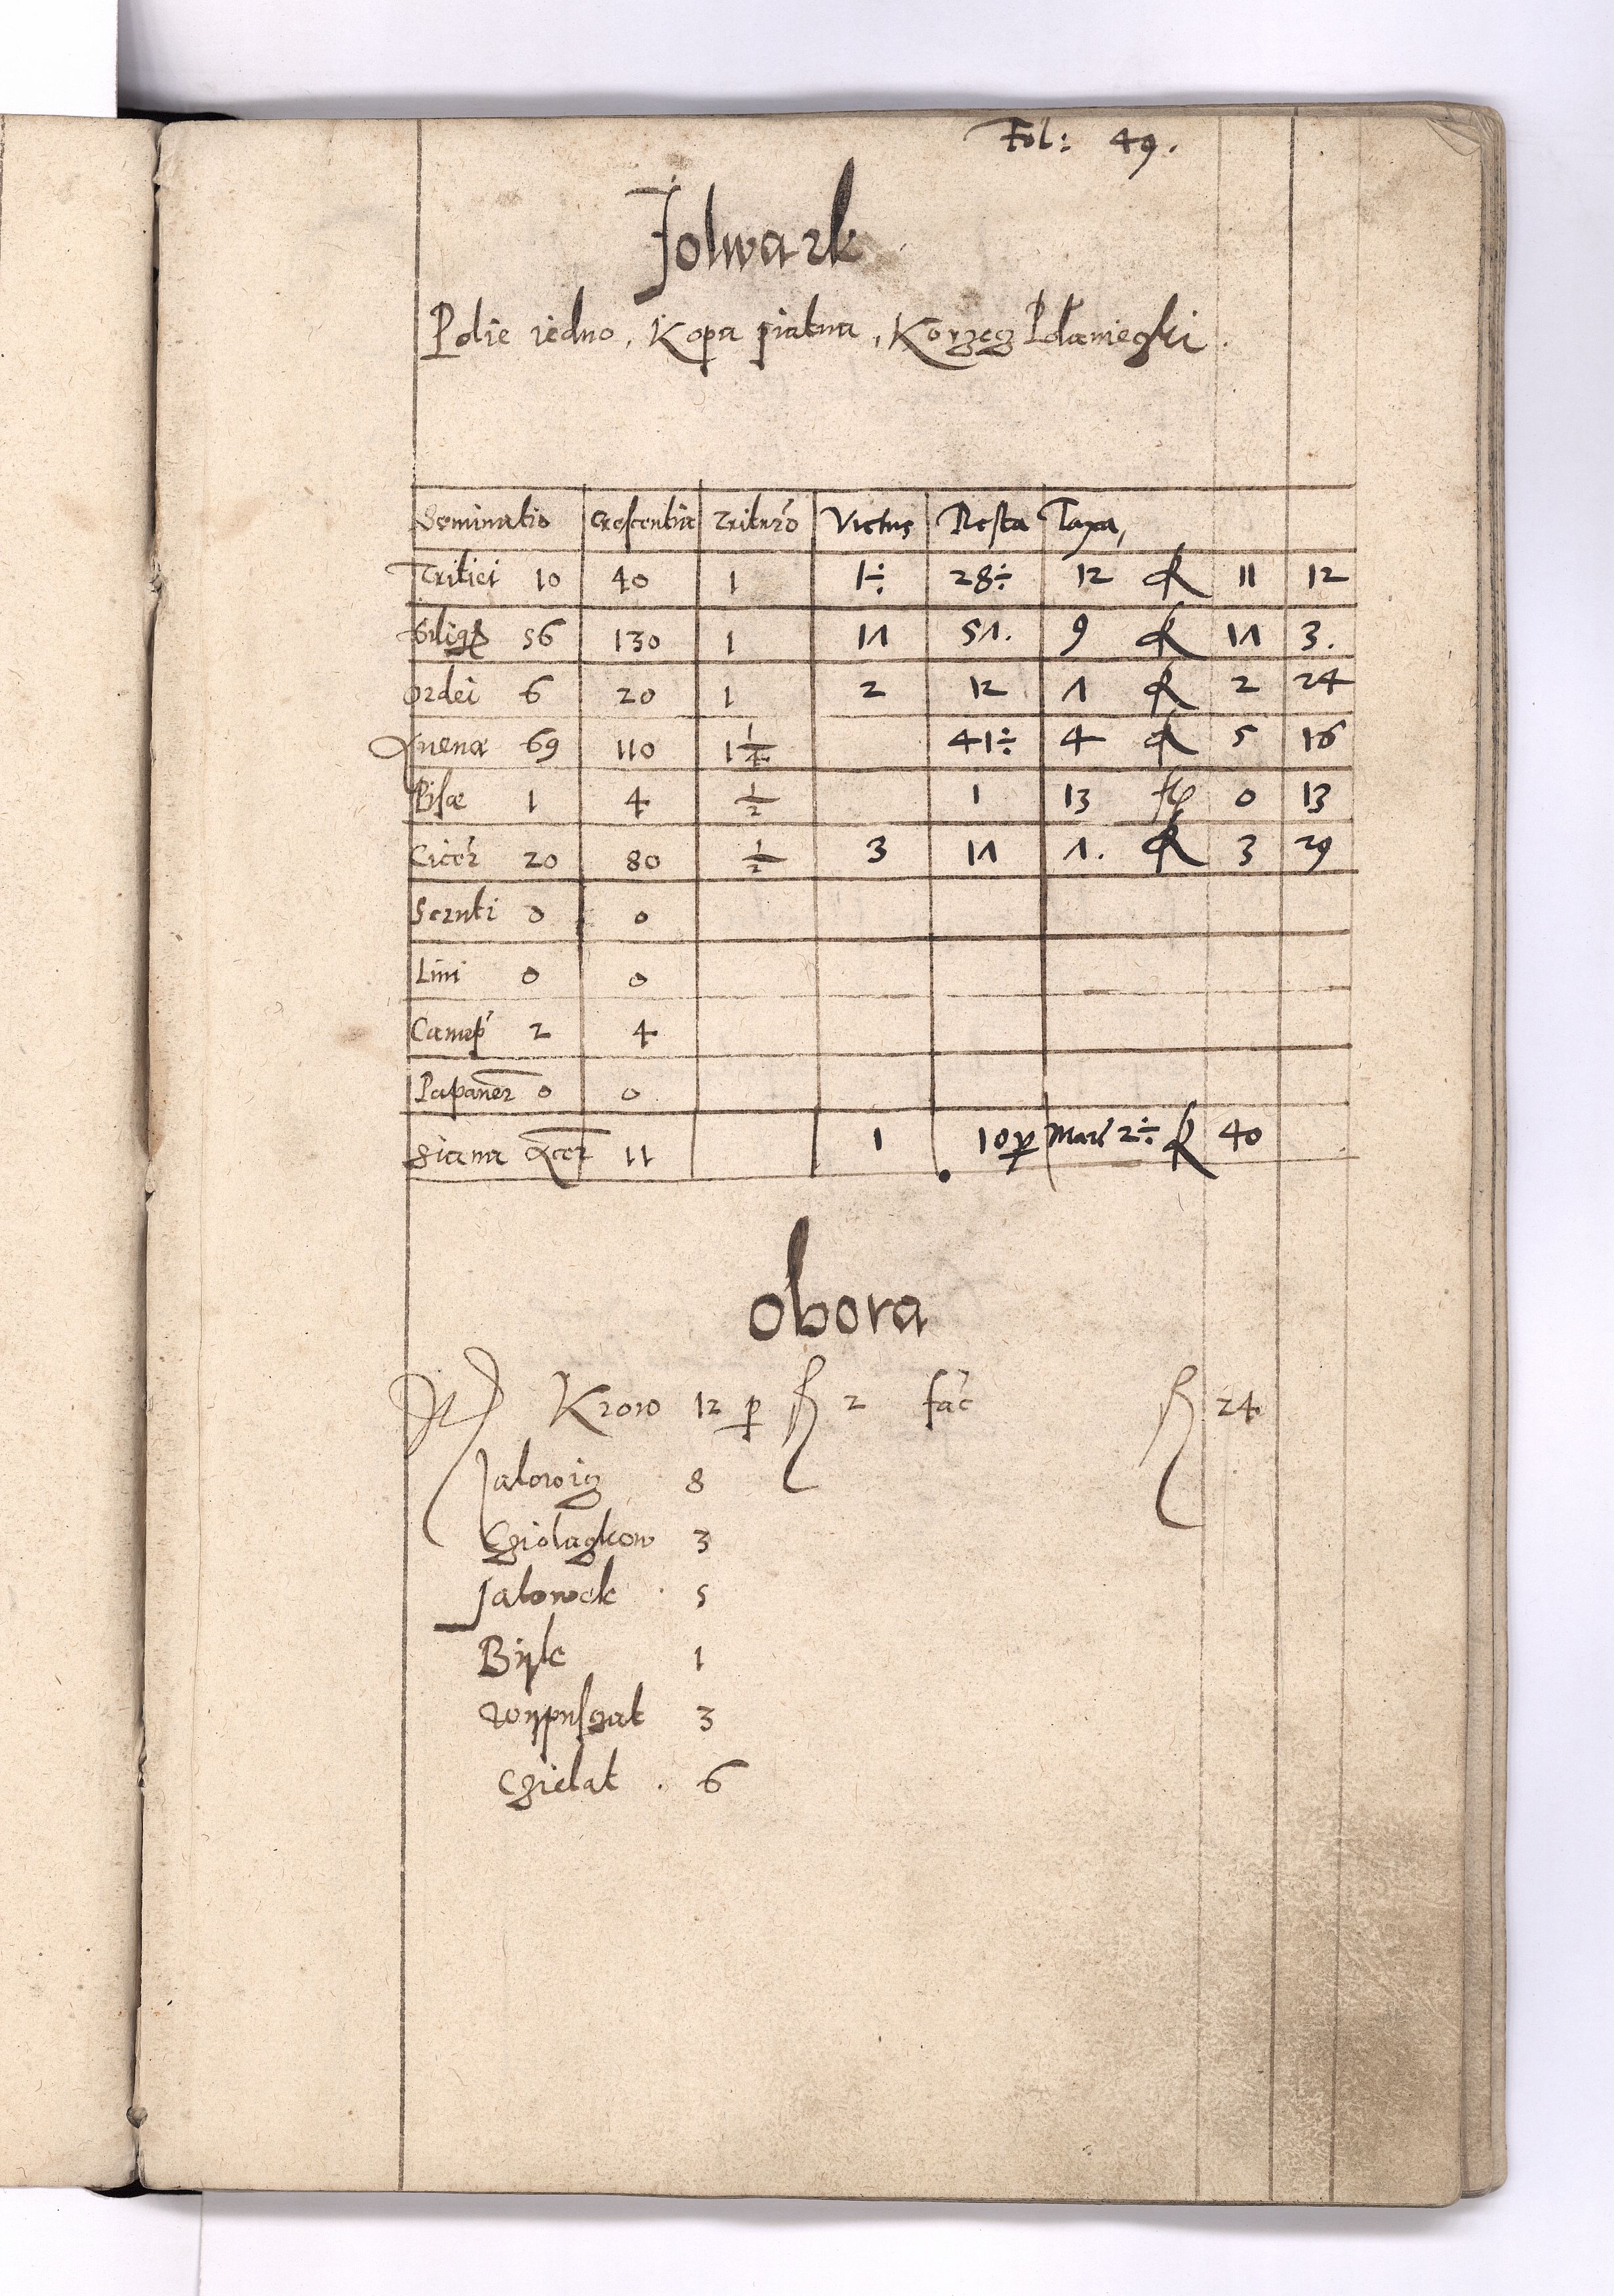 Fol: 49.
Folwark
Polie iedno, Kopa piatna, Korzecz Polanieczki.
Seminatio Crescentia Trituro Victus Resta Taxa,
Tritici 10 40 1 1÷ 28÷ 12 fl 11 12
Silig 56 130 1 11 51. 9 fl 11 3.
Ordei 6 20 1 2 12 1 fl 2 24
Auenæ 69 110 1 1/4 41÷ 4 fl 5 16
Pisæ 1 4 1/2 1 13 0 13
Cicer 20 80 1/2 3 11 1. fl 3 29
Seruti 0 0
Lini 0 0
Canap 2 4
Papauer 0 0
Siana Acer 11 1 10 p Mar 2÷ fl 40
obora
Krow 12 p fl 2 fac fl 24
Jalowicz 8
Cziolaczkow 3
Jalowek 5
Byk 1
Wypusczat 3
Czielat 6